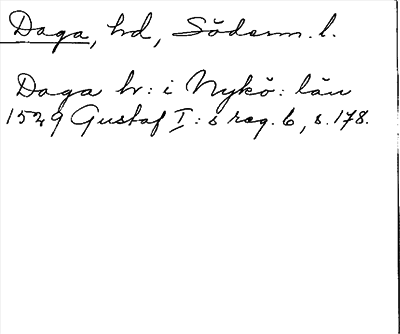 Daga, hd, Söderm. l.
Daga hr: i Nykö: län
1529 Gustaf I:s reg. 6, s. 178.